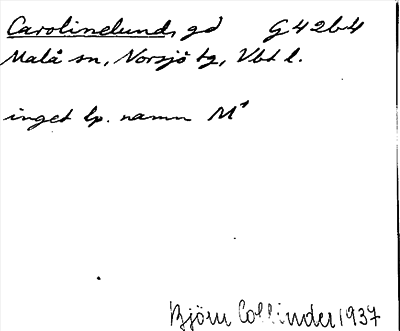 Carolinelund, gd G42b4
Malå sn, Norsjö tg, Vbt l.
inget lp. namn M¹
Björn Collinder 1937